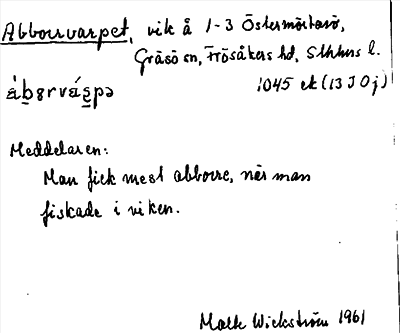 Abborrvarpet, vik å 1-3 Östermörtarö,
Gräsö sn, Frösåkers hd, Sthlms l.
1045 ek (13 I 0 j)
Meddelaren:
Man fick mest abborre, när man
fiskade i viken.
Wickström 1961